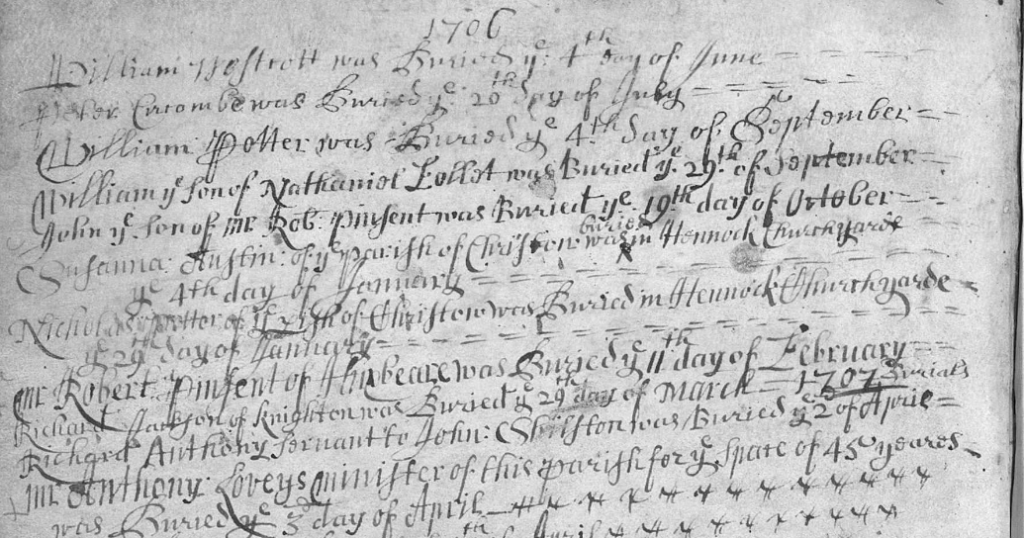 1706
William Westcott was Buried ye 4th day of June
Peter Ercombe was Buried ye 20th day of July
William Potter was Buried ye 4th day of September
William ye son of Nathaniel Lollet was Buried ye 29th of September
John ye son of Mr Rob: Pinsent was Buried ye 19th day of October
Susanna Austin of ye Parish of Christow was buried in Hennock Churchyarde
ye 4th day of January
Nicholas Potter of ye Parish of Christow was Buried in Hennock Churchyarde
ye 29th day of January
Mr Robert Pinsent of was Buried ye 11th day of February
Richard Jackson of Knighton was Buried ye 29th day of March 1707 Burials
Richard Anthony servant to John: Shilston was Buried ye 2d of Aprie
Mr Anthony Loveys minister of this parish for ye space of 45 yeares
was Buried ye 3d day of April
th April